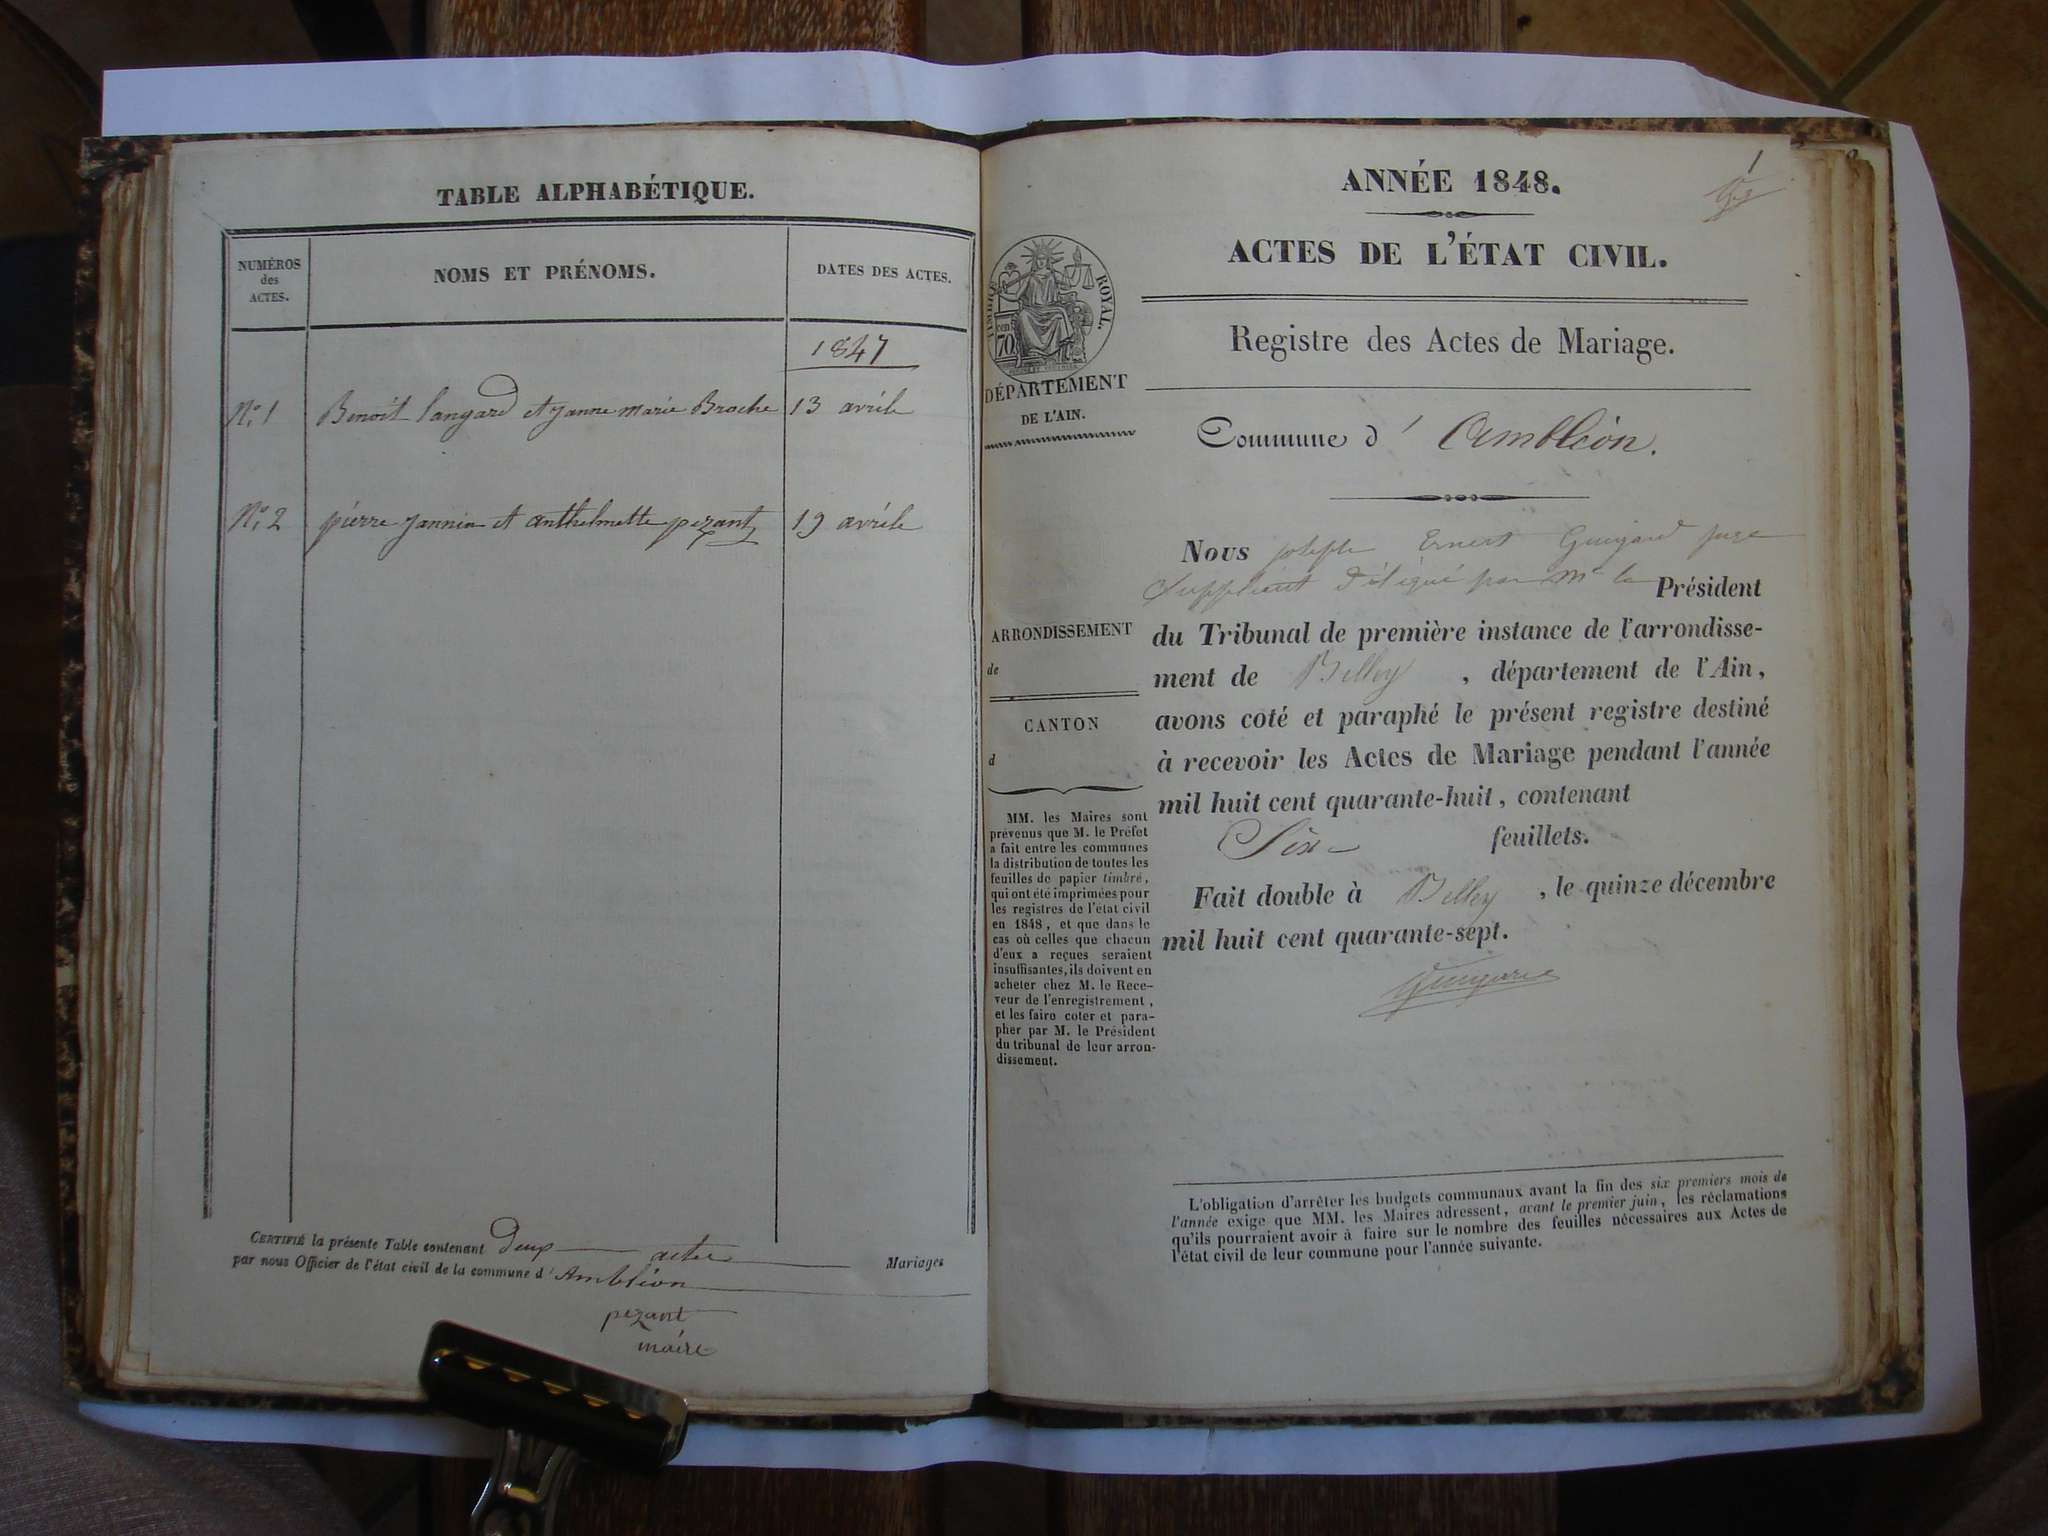 TABLE ALPHABÉTIQUE.
NUMÉROS
des
ACTES.
NOMS ET PRÉNOMS.
DATES DES ACTES.
1847
N.º 1 Benoit Langard et Janne marie Broche 13 avrile
N.º 2 pierre Jannin et anthelmette pezant 19 avrile
CERTIFIÉ la présente Table contenant Deux actes Mariages
par nous Officier de l'état civil de la commune d'Ambléon
pezant
maire
1
ANNÉE 1848.
ACTES DE L'ÉTAT CIVIL.
Registre des Actes de Mariage.
TIMBRE ROYAL.
cen
70
DÉPARTEMENT
DE L'AIN.
Commune d' Ambléon.
ARRONDISSEMENT
de
CANTON
d
MM. les Maires sont
prévenus que M. le Préfet
a fait entre les communes
la distribution de toutes les
feuilles de papier timbré,
qui ont été imprimées pour
les registres de l'état civil
en 1848, et que dans le
cas où celles que chacun
d'eux a reçues seraient
insuffisantes, ils doivent en
acheter chez M. le Rece-
veur de l'enregistrement,
et les faire coter et para-
pher par M. le Président
du tribunal de leur arron-
dissement.
Nous joseph Ernest Guigard juge
Suppléant Délégué par Mr le Président
du Tribunal de première instance de l'arrondisse-
ment de Belley, département de l'Ain,
avons coté et paraphé le présent registre destiné
à recevoir les Actes de Mariage pendant l'année
mil huit cent quarante-huit, contenant
Six feuillets.
Fait double à Belley, le quinze décembre
mil huit cent quarante-sept.
Guigard
L'obligation d'arrêter les budgets communaux avant la fin des six premiers mois de
l'année exige que MM. les Maires adressent, avant le premier juin, les réclamations
qu'ils pourraient avoir à faire sur le nombre des feuilles nécessaires aux Actes de
l'état civil de leur commune pour l'année suivante.